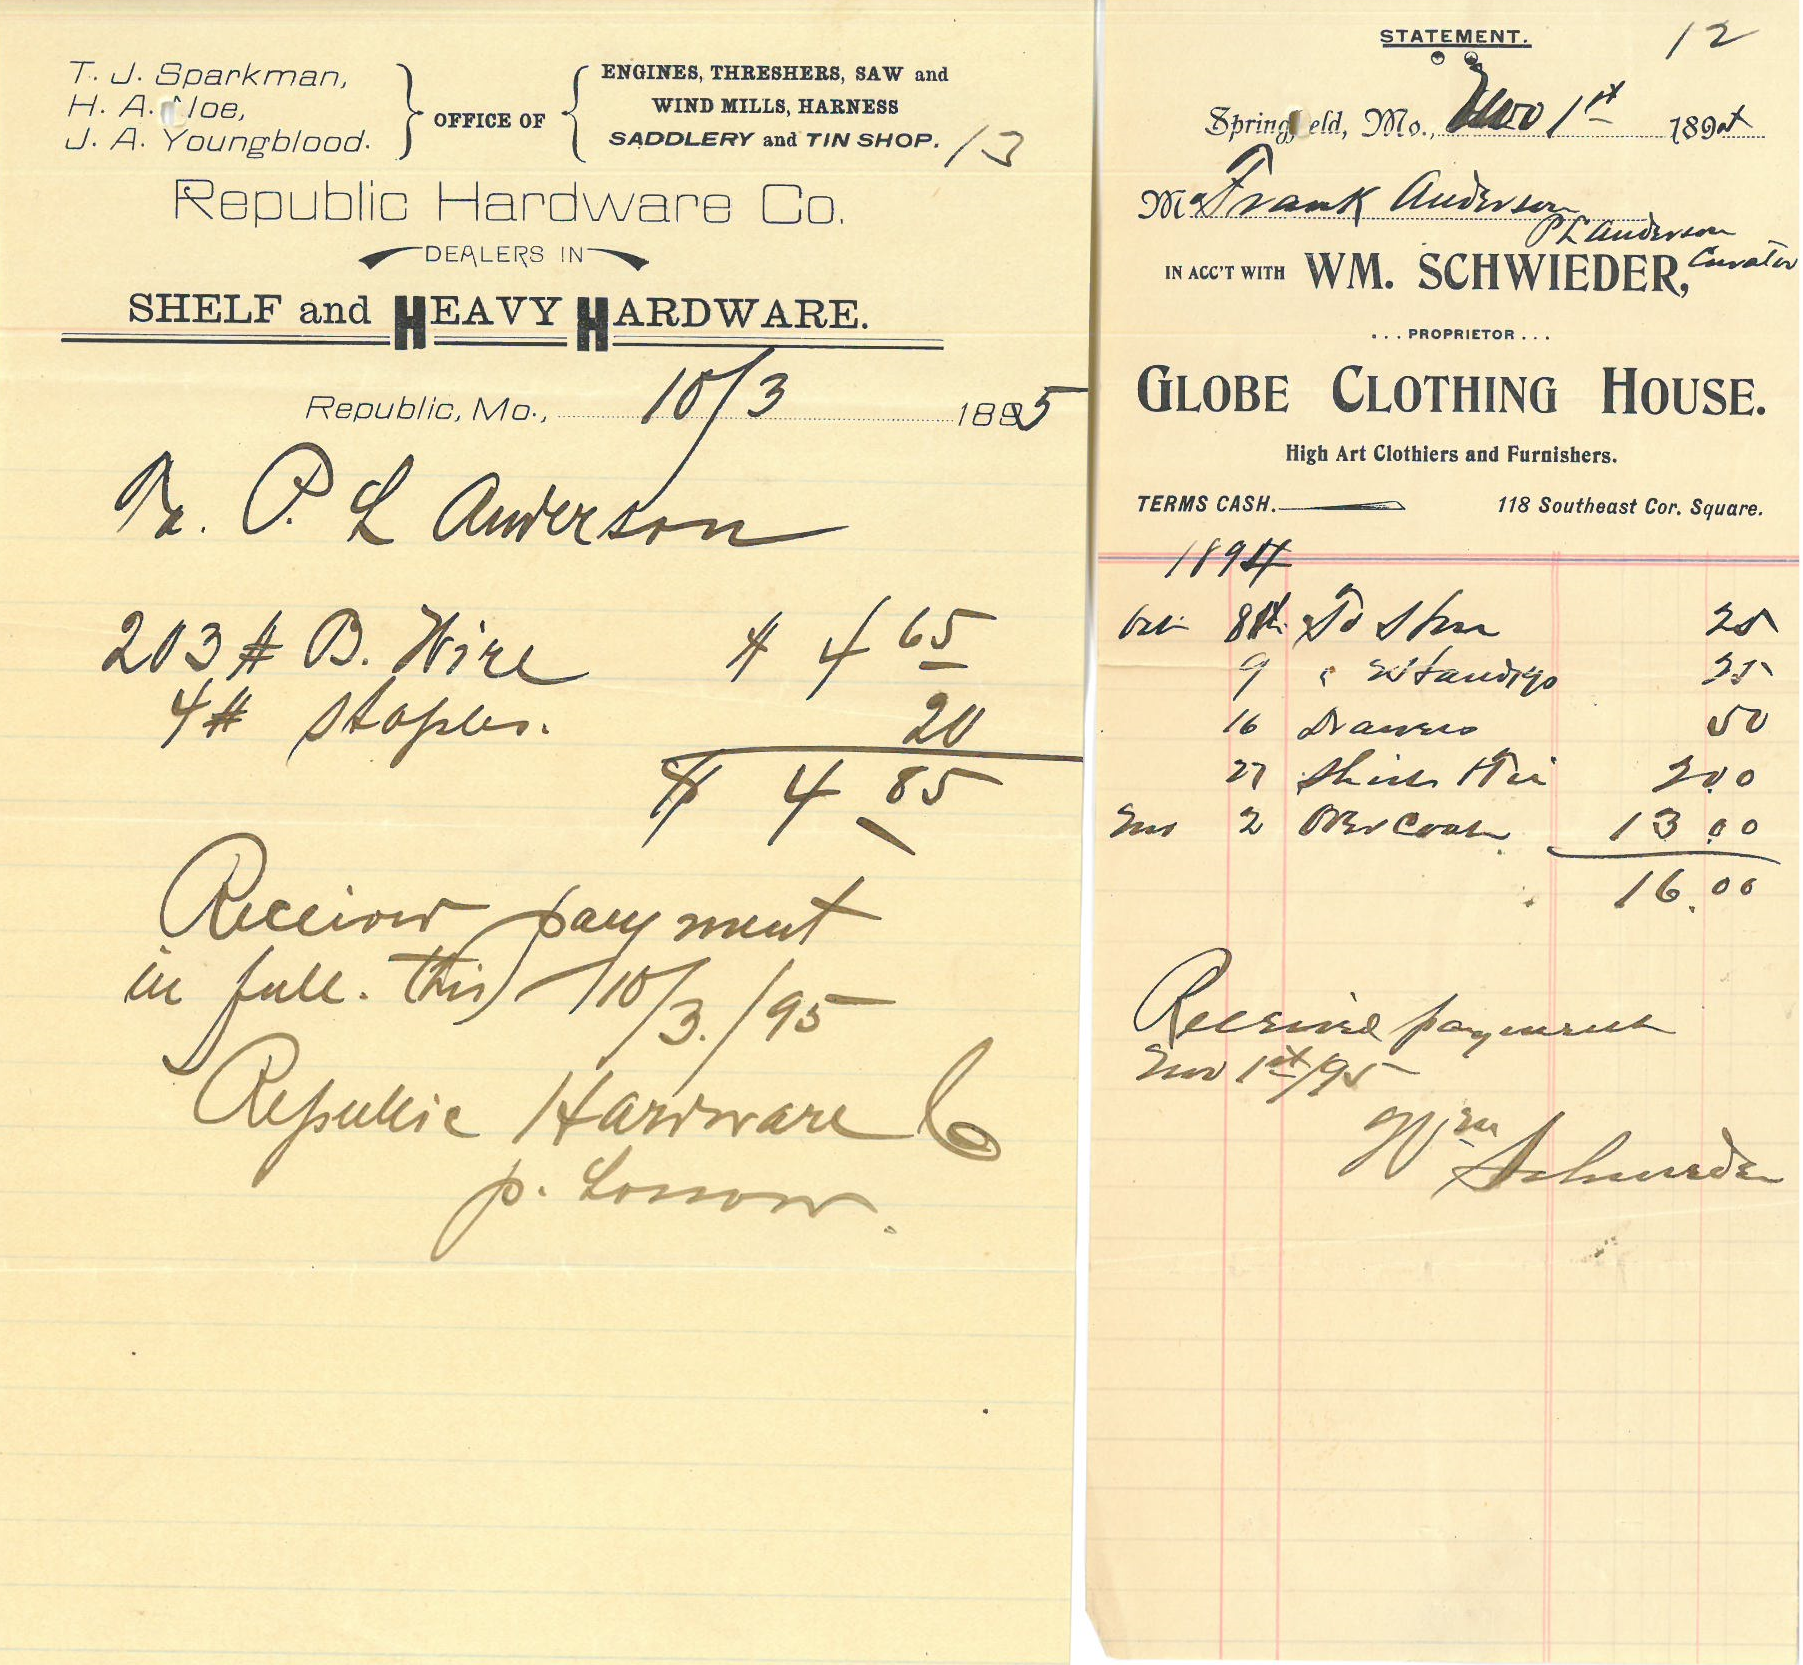 T. J. Sparkman,
H. A. Noe,
J. A. Youngblood.
OFFICE OF
ENGINES, THRESHERS, SAW and
WIND MILLS, HARNESS
SADDLERY and TIN SHOP.
13
Republic Hardware Co.
DEALERS IN
SHELF and HEAVY HARDWARE.
Republic, Mo., 10/3 1895
M. P. L Anderson
203 # B. Wire $ 4 65
4 # Staples. 20
$ 4 85
Received payment
in full. this 10/3./95
Republic Hardware Co
p.
STATEMENT.
12
Springfield, Mo., Nov 1st 189
Mr Frank Anderson
P L Anderson
Curator
IN ACC'T WITH WM. SCHWIEDER,
... PROPRIETOR ...
GLOBE CLOTHING HOUSE.
High Art Clothiers and Furnishers.
TERMS CASH. 118 Southeast Cor. Square.
1894
Oct 8th To 25
9 " 25
16 Drawers 50
27 Shirts 2.00
Nov 2 Over Coat 13.00
16.00
Received payment
Nov 1st/95
Wm Schwieder